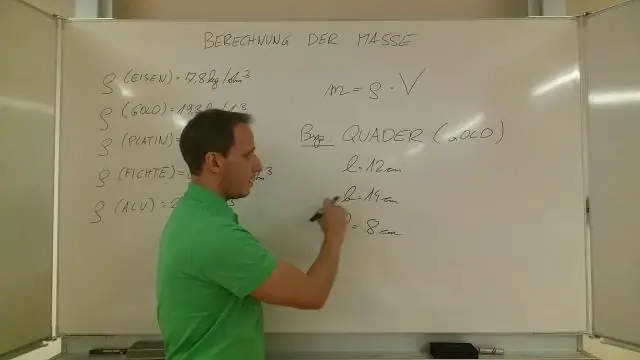 BERECHNUNG DER MASSE
ρ (EISEN) = 7,8 kg/dm³
ρ (GOLD) = 19,3
ρ (PLATIN) =
ρ (FICHTE) =
ρ (ALU) = 2
m = ρ · V
Bsp.: QUADER (GOLD)
l = 12 cm
b = 14 cm
= 8 cm